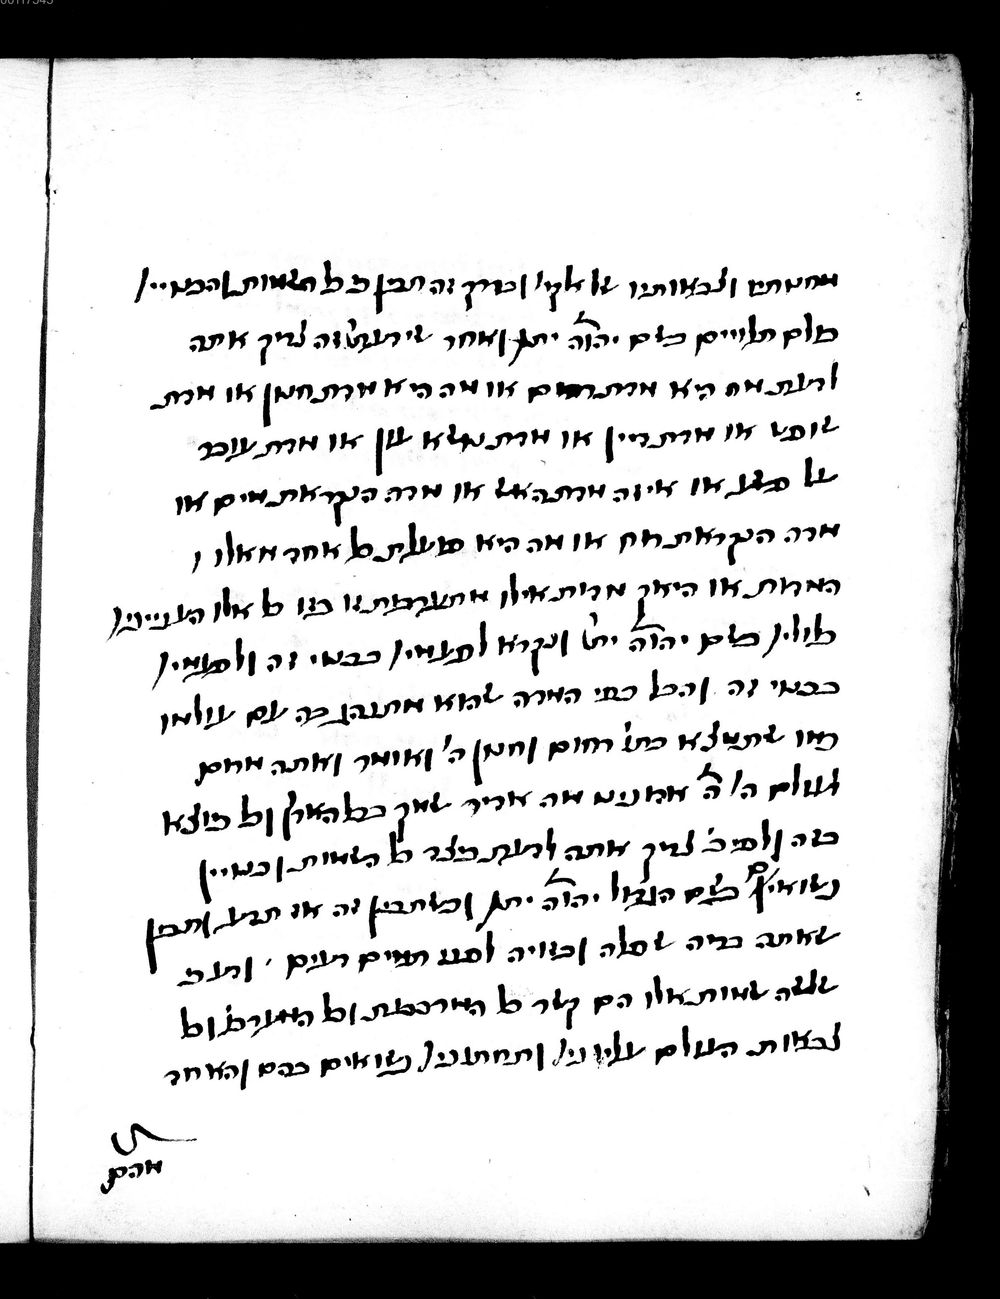 מחנותיו וצבאותיו של אלקי' וכדרך זה תבין כל השמות והכנויי'
כולם תלויים בשם יהוה ית' ואחר שידעת זה צריך אתה
לדעת מה היא מדת רחום או מה היא מדת חנון או מדת
שופט או מדת דיין או מדת נושא עון או מדת עובר
על פשע או איזה מדת האש או מדה הנקראת מים או
מדה הנקראת רוח או מה היא פעולת כל אחד מאלו ו
המדות או היאך מדות אילו מתערבות זו בזו כל אלו העניינים
כולין בשם יהוה ית' ונקרא לפעמין בכנוי זה ולפעמין
בכנוי זה והכל כפי המדה שהוא מתנהג בה עם עולמו
כמו שתמצא כתו' רחום וחנון ה' ואומר ואתה מרום
לעולם ה' ה' אדונינו מה אדיר שמך בכל הארץ וכל כיוצא
בזה ולפיכ' צריך אתה לדעת כיצד כל השמות וכנויין
נשואים בשם הגדול יהוה ית' וכשתבין זה אז תדע ותבין
שאתה בריה שפלה ובזויה לפני תמים דעים ותדע כי
שלשה שמות אלו הם קשר כל המרכבות וכל המערכו' וכל
צבאות העולם עליוני' ותחתוני' נשואים בהם והאחד
מהם